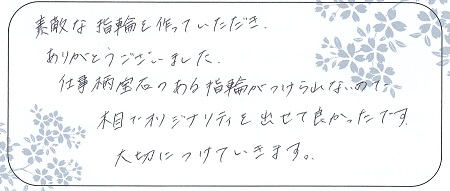 素敵な指輪を作っていただき、
ありがとうございました。
仕事柄宝石のある指輪がつけられないので
木目でオリジナリティを出せて良かったです。
大切につけていきます。